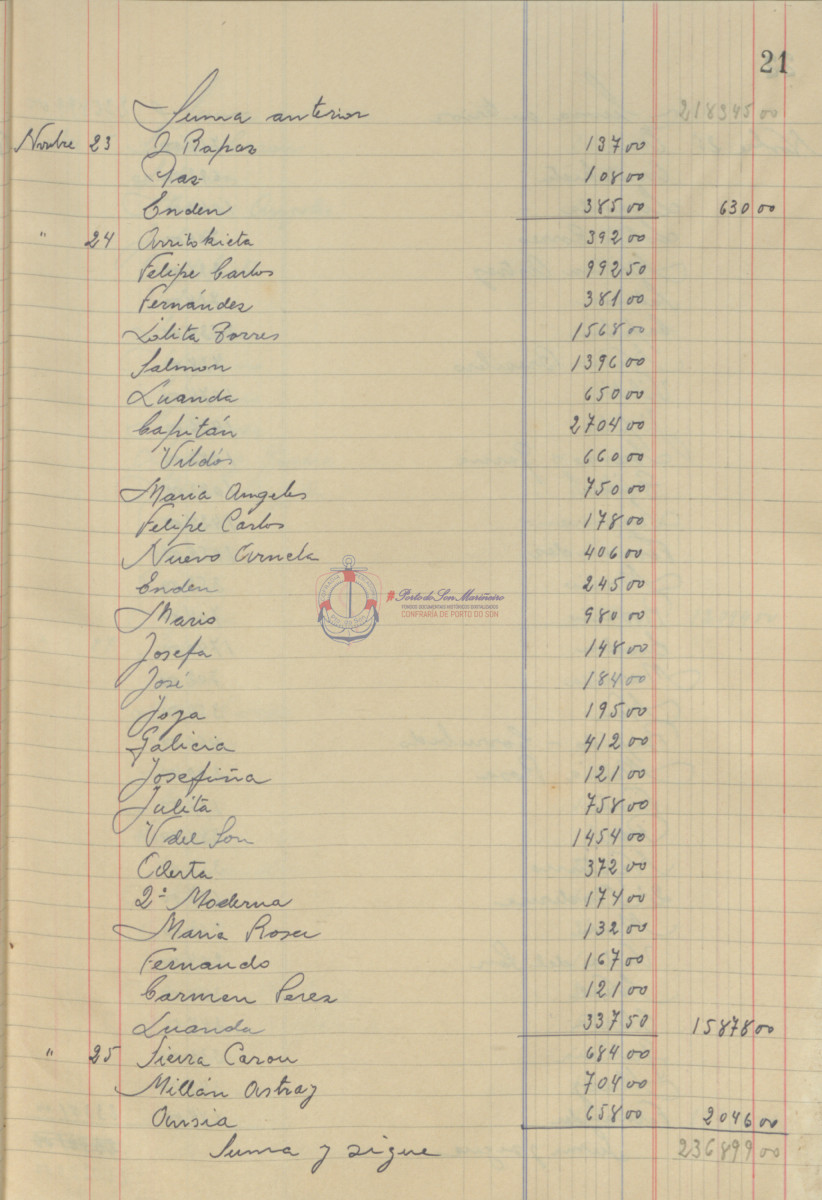 21
Suma anterior 218345 00
Novbre 23 J Rapaz 137 00
Paz 108 00
Enden 385 00 630 00
" 24 Arritokieta 392 00
Felipe Carlos 992 50
Fernández 381 00
Lolita Torres 1568 00
Salmon 1396 00
Luanda 650 00
Capitán 2704 00
Vildós 660 00
Maria Angeles 750 00
Felipe Carlos 178 00
Nuevo Arnela 406 00
Enden 245 00
Mario 980 00
Josefa 148 00
José 184 00
Joya 195 00
Galicia 412 00
Josefiña 121 00
Julita 758 00
V del Son 1454 00
372 00
2ª Moderna 174 00
Maria Rosa 132 00
Fernando 167 00
Carmen Perez 121 00
Luanda 337 50 15878 00
" 25 Sierra Carou 684 00
Millán Astray 704 00
Ansia 658 00 2046 00
Suma y sigue 236899 00
Porto do Son Mariñeiro
FONDOS DOCUMENTAIS HISTÓRICOS DIXITALIZADOS
CONFRARÍA DE PORTO DO SON